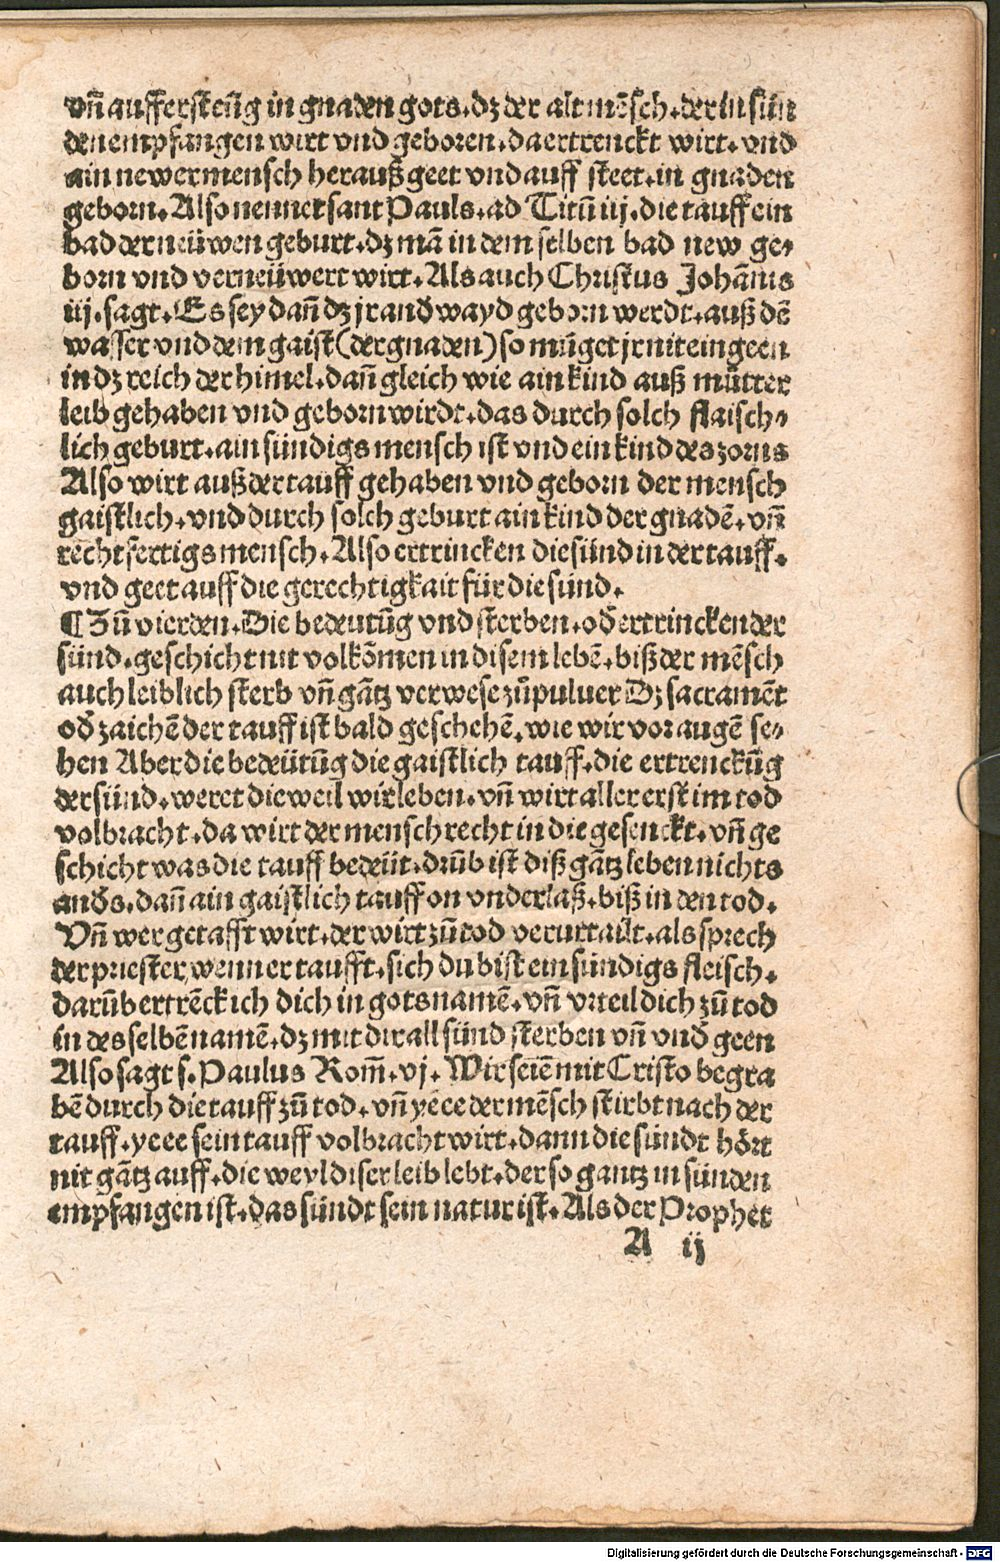 vñ auffersteñg in gnaden gots. dz der alt mẽsch. der in sün
den empfangen wirt vnd geboren. da ertrenckt wirt. vnd
ain newer mensch herauß geet vnd auff steet. in gnaden
geborn. Also nennet sant Pauls. ad Titũ iij. die tauff ein
bad der neüwen geburt. dz mã in dem selben bad new ge⸗
born vnd verneüwert wirt. Als auch Christus Johãnis
iij. sagt. Es sey dañ dz jr andwayd geborn werdt. auß dẽ
wasser vnd dem gaist (der gnaden) so müget jr nit eingeen
in dz reich der himel. dañ gleich wie ain kind auß můtter
leib gehaben vnd geborn wirdt. das durch solch flaisch⸗
lich geburt. ain sündigs mensch ist vnd ein kind des zorns
Also wirt auß der tauff gehaben vnd geborn der mensch
gaistlich. vnd durch solch geburt ain kind der gnadẽ. vñ
rechtfertigs mensch. Also ertrincken die sünd in der tauff.
vnd geet auff die gerechtigkait für die sünd.
¶ Zů vierden. Die bedeutũg vnd sterben. oď ertrincken der
sünd. geschicht nit volkõmen in disem lebẽ. biß der mẽsch
auch leiblich sterb vñ gãtz verwese zů puluer Dz sacramẽt
oď zaichẽ der tauff ist bald geschehẽ. wie wir vor augẽ se⸗
hen Aber die bedeütũg die gaistlich tauff. die ertrenckũg
der sünd. weret die weil wir leben. vñ wirt aller erst im tod
volbracht. da wirt der mensch recht in die gesenckt. vñ ge
schicht was die tauff bedeüt. drũb ist diß gãtz leben nichts
anďs. dañ ain gaistlich tauff on vnderlaß. biß in den tod.
Vñ wer getafft wirt. der wirt zů tod verurtailt. als sprech
der priester, wenn er taufft. sich du bist ein sündigs fleisch.
darũb ertrẽck ich dich in gots namẽ. vñ vrteil dich zů tod
in des selbẽ namẽ. dz mit dir all sünd sterben vñ vnď geen
Also sagt s. Paulus Rom̃. vj. Wir seiẽ mit Cristo begra
bẽ durch die tauff zů tod. vñ yeee der mẽsch stirbt nach der
tauff. yeee sein tauff volbracht wirt. dann die sündt hört
nit gãtz auff. die weyl diser leib lebt. der so gantz in sünden
empfangen ist. das sündt sein natur ist. Als der Prophet
A ij
Digitalisierung gefördert durch die Deutsche Forschungsgemeinschaft - DFG